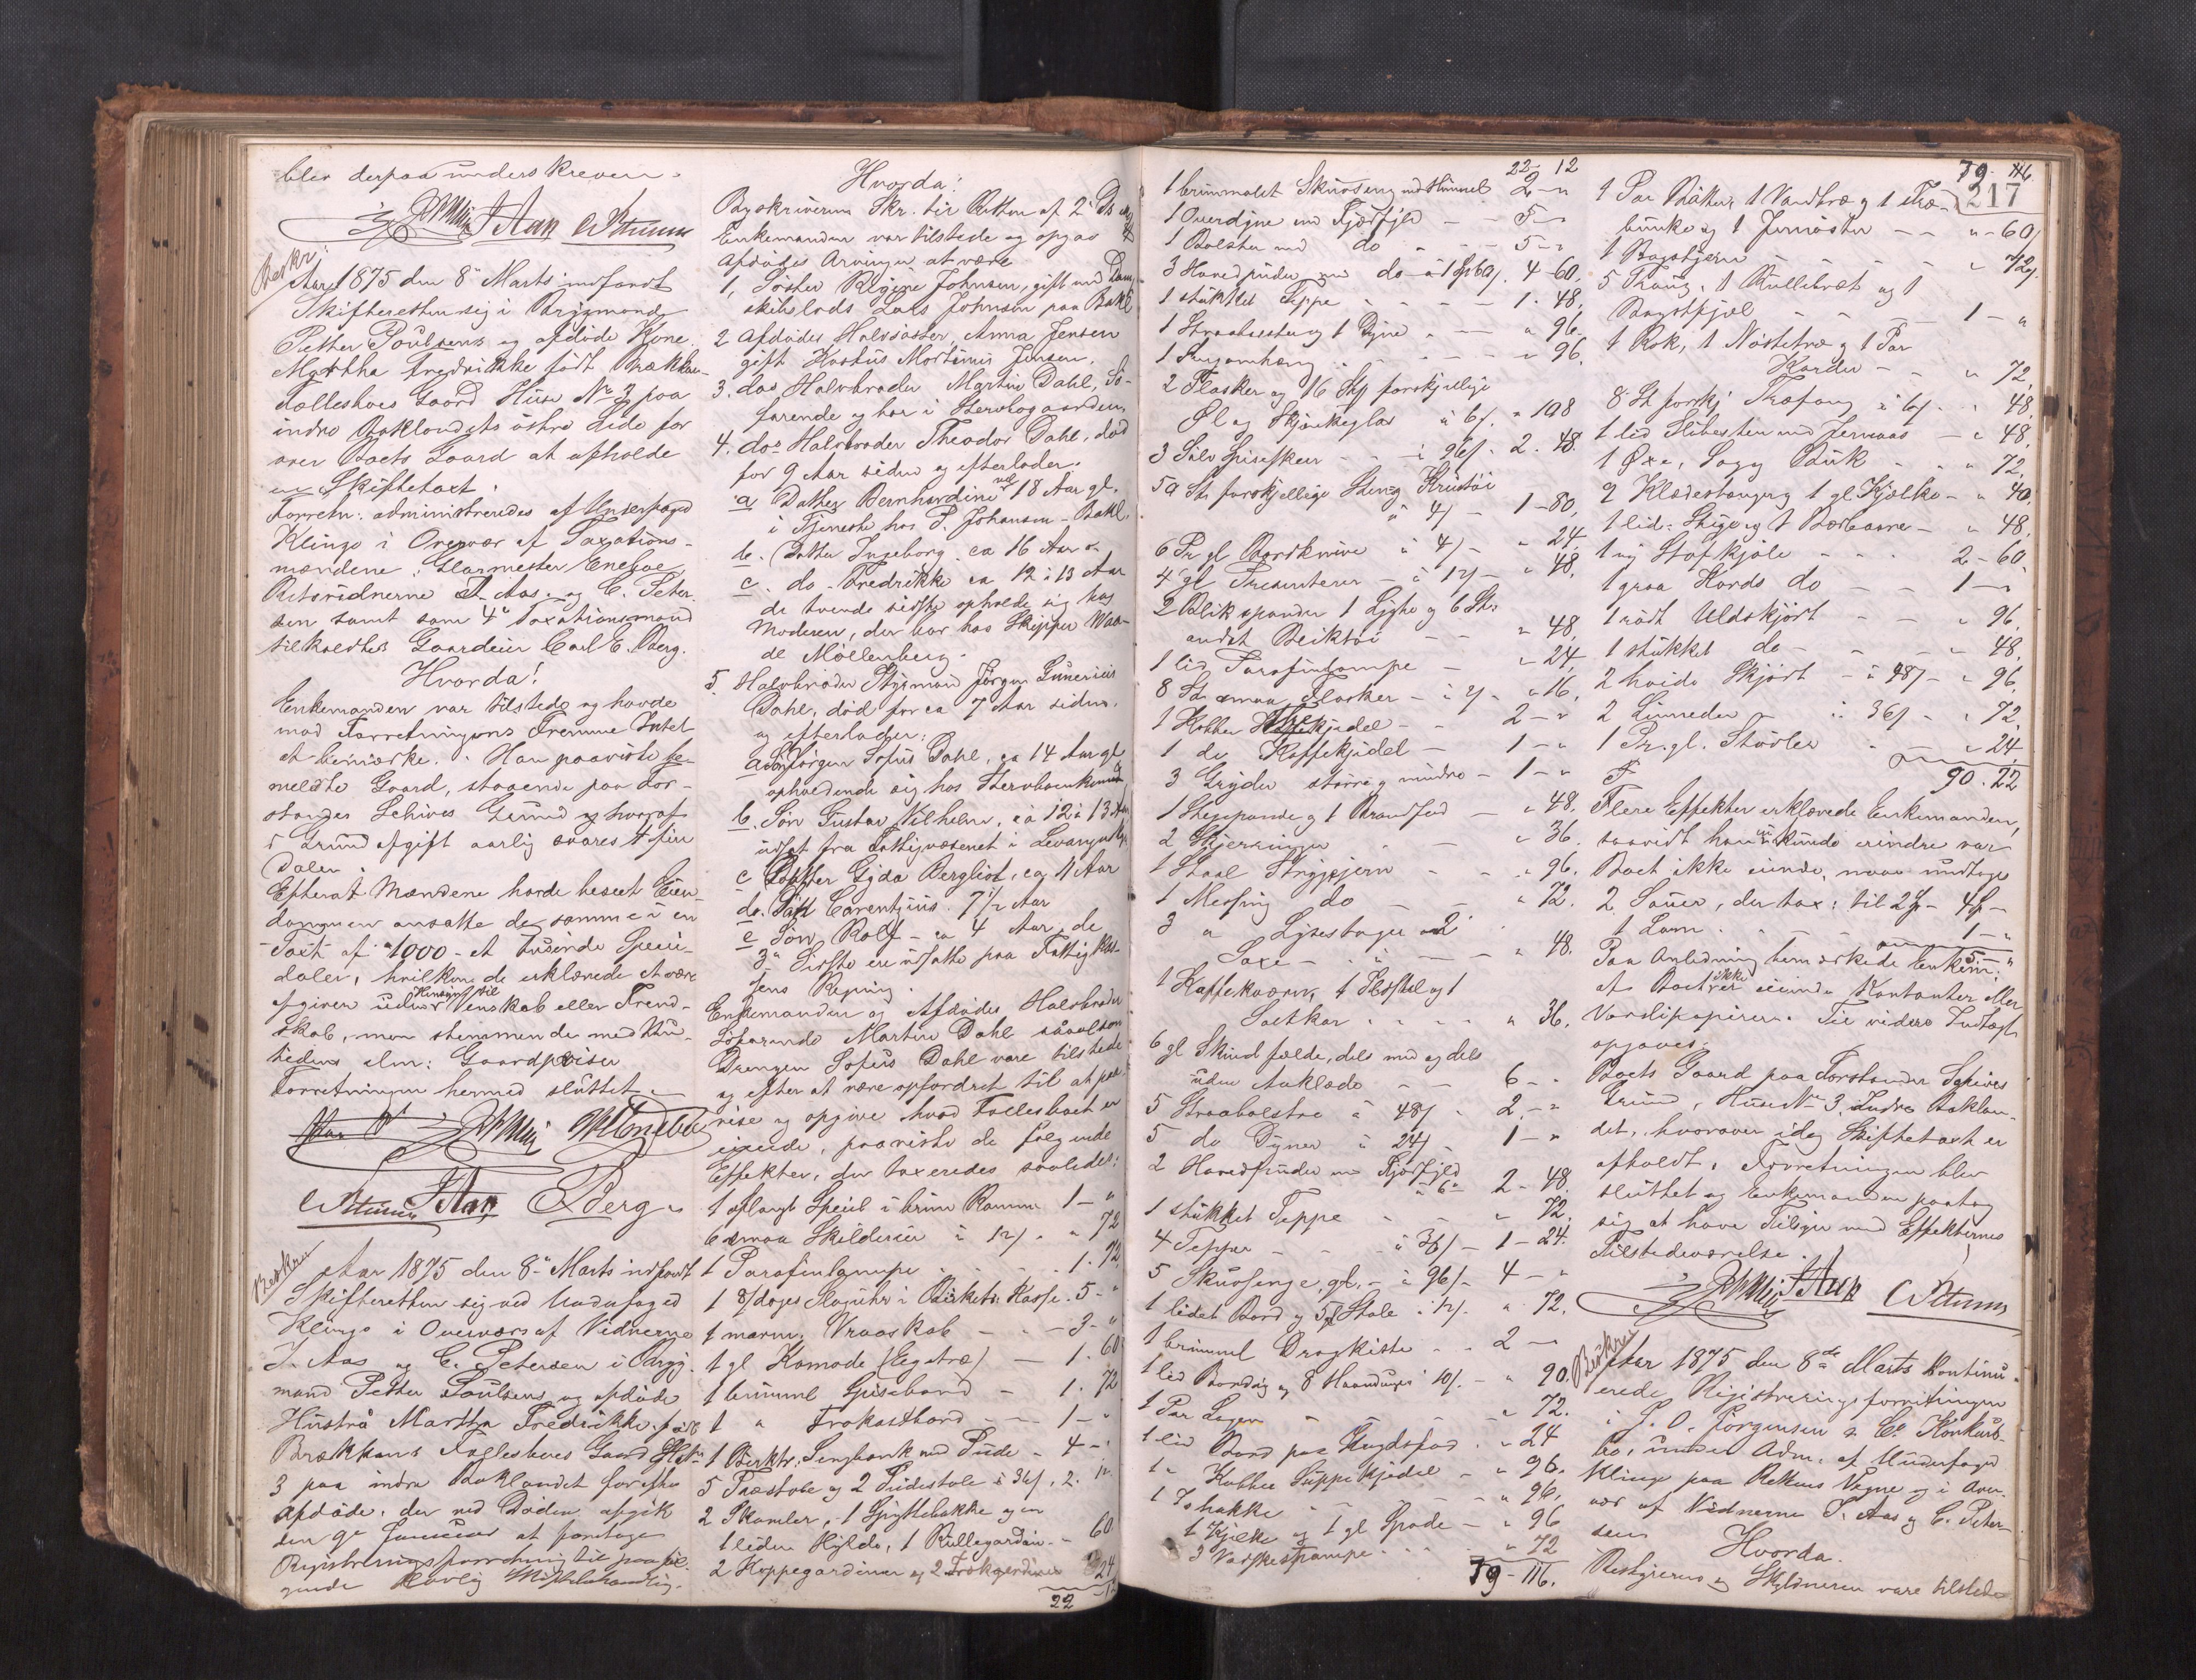 blev derpaa underskreven.
Beskr:
Aar 1875 den 8de Marts indfandt
Skifteretten sig i Brygmand
Petter Poulsens og afdøde Kone
Martha Fredrikke født Brækkan
Fællesboes Gaard Huse No 3 paa
indre Baklandets østre Side for
over Boets Gaard at afholde
en Skiftetaxt.
Forretn: administreredes af Underfoged
Klingo i Overvær af Taxations-
mændene: Glarmester Engboe,
Retsvidnerne J. Aas og C. Peter-
sen samt som 4de Taxationsmand
tilkaldtes Gaardeier Carl E. Berg.
Hvorda!
Enkemanden var tilstede og havde
mod Forretningens Fremme Intet
at bemærke. Han paaviste be-
meldte Gaard, staaende paa For-
stander Schives Grund og hvoraf
i Grundafgift aarlig svares 4 fire
Daler.
Efterat Mændene havde beseet Eien-
dommen ansatte de samme i en
Taxt af 1000 - et tusinde Specie-
daler, hvilken de erklærede at være
afgiven uden Hensyn til Venskab eller Frend-
skab, men stemmende med Nu-
tidens alm: Gaardpriser
Forretningen hermed sluttet.
C Petersen J Aas C Berg
Beskr
Aar 1875 den 8de Marts indfandt
Skifteretten sig ved Underfoged
Klingo i Overvær af Vidnerne
J. Aas og C. Petersen i Bryg-
mand Petter Poulsens og afdøde
Hustru Martha Fredrikke født
Brækkans Fællesboes Gaard
3 paa indre Baklandet for efter
Afdøde, der ved Døden afgik
den 9de Januar at foretage
Registreringsforretning til paaføl-
gende lovlig Skiftebehandling.
Hvorda:
Byskriverens Skr. til Retten af 2de
Enkemanden var tilstede og opgav
Afdødes Arvinger at være
1, Søster Regine Johnsen, gift med Dam-
skibslods Lars Johnson paa Bakl
2 Afdødes Halvsøster, Anna Jensen
gift Kastus Mortinus Jensen.
3. dos Halvbroder Martin Dahl, Sø-
farende og bor i Stervbogaarden
4. dos Halvbroder Theodor Dahl, død
for 9 Aar siden og efterlader.
a Datter Bernhardine 18 Aar gl.
i Tjeneste hos P. Johansen - Bakl.
b. Datter Ingeborg ca 16 Aar
c. do Fredrikke ca 12 à 13 Aar
de tvende sidste opholde sig hos
Moderen, der bor hos Skipper
Møllenberg.
5. Halvbroder Styrmand Jørgen Gunerius
Dahl, død for ca 7 Aar siden,
og efterlader:
a Søn Jørgen Sofus Dahl, ca 14 Aar gl
opholdende sig hos Stervboenkemand
b. Søn Gustav Vilhelm, ca 12 à 13 Aar
udsat fra Fattigvæsenet i Levanger
c Datter Gyda Bergliot, ca 11 Aar
d. Søn Carentius 7 1/2 Aar
e Søn Rolf - ca 4 Aar, de
3de sidste ere udsatte paa Fattigkas-
sens Regning.
Enkemanden og Afdødes Halvbroder
Søfarende Martin Dahl såvelsom
Drengen Sofus Dahl vare tilstede
og efter at være opfordret til at paa-
vise og opgive hvad Fællesboet er
eiende, paaviste de følgende
Effekter, der taxeredes saaledes:
1 aflangt Speil i brun Ramme 1 - "
6 smaa Skilderier à 12/ - " 72
1 Parafinlampe 1. 72
1 8/dages Slaguhr i Birketr: Kasse. 5 - "
1 marm. Vraaskab - 3 - "
1 gl Komode (Egetræ) - 1. 60
1 brunml Spisebord - 1. 72
1 " Frokostbord - 1 - "
1 Birktr. Sengbænk med Pude - 4 -
5 Træstole og 2 Pudestole à 36/. 2.
2 Skamler, 1 Spyttebakke og en
1 liden Hylde, 1 Rullegardin - 60
2 Kappegardiner og 2 24
22
22 12
1 brunmalet Skuvseng med Himmel 2 - "
1 Overdyne med Fjærfyld - - 5 -
1 Bolster med do - - 5 -
3 Hovedpuder med do à 1 60/. 4 - 60.
1 stukket Teppe - - 1. 48.
1 Straabolster og 1 Dyne - - " 96.
1 Sengomhæng - - " 96.
2 Flasker og 16 Stk forskjellige
Øl og Skjænkeglas à 6/. " 108
3 Sølv Spiseskeer - à 96/. 2. 48.
50 Stk forskjellige Steng Krustøi
à 4/ - 1 - 80.
6 Pr gl Bordknive à 4/ - " 24.
4 gl Presenterer - à 12/ - " 48.
2 Blikspande 1 Lygte og 6 Stk
andet Bliktøi - - " 48.
1 lid Parafinlampe - " 24.
8 Stk smaa Flasker - à 2/ - " 16.
1 Kobber Thekjedel - 2 - "
1 do Kaffekjedel - 1 - "
3 Gryder større og mindre - 1 - "
1 Stegepande og 1 Brandfad - " 48.
2 Skjerninger - " 36.
1 Staal Strygejern - - " 96.
1 Messing do - - " 72.
3 " Lysestager
Saxe - - " 48.
1 Kaffekværn, 1
Saltkar - - " 36.
6 gl Skindfælde, dels med og dels
uden Aaklæde - - 6 - "
5 Straabolstre à 48/ - 2. - "
5 do Dyner à 24/ - 1 - "
2 Hovedpuder med Fjærfyld
2 - 48.
1 stukket Teppe - - " 72.
4 Tepper - - à 36/ - 1 - 24.
5 Skuvsenge, gl. - à 96/ - 4 - "
1 lidet Bord og 5 gl Stole à 12/. " 72.
1 brunmal Dragkiste - 2 -
1 lid Borddug og 8 Haanduger à 10/. - " 90.
1 Par Lagen - - " 72.
1 lid Bord paa Krydsfod " 24
1 " Kobber Suppekjedel - " 96.
1 Ishakke - " 96.
1 Kjælke og 1 gl Spade - " 96
3 Vadskestampe - " 72
79 - 116.
79 116
217
1 Par Bøtter, 1 Vandtræ og 1 Træ-
bunke og 1 Jernøster - - " - 60/
1 Bagstjern - - " 72/.
5 Traug. 1 Rullebræt og 1
Bagstfjøl - - 1 - "
1 Rok, 1 Nøstetræ og 1 Par
Karder - - " 72.
8 Stk forskj Træfang à 6/ - " 48.
1 lid Slibesten med Jernaas - " 48.
1 Øxe, Sag og Bukk - " 72.
2 Klædestænger og 1 gl Kjælke - " 40.
1 lid. Stige og 1 Børbaare - " 48.
1 ny Stofkjole - - 2 - 60.
1 graa Hords do - - 1 - "
1 rødt Uldskjørt - - " 96.
1 stukket do - - " 48.
2 hvide Skjørt - à 48/ - " 96.
2 Linneder - à 36/ - " 72.
1 Pr. gl. Støvler - " 24.
90. 22
Flere Effekter erklærede Enkemanden,
saavidt han nu kunde erindre var
Boet ikke eiende, naar undtages
2 Sauer, der tax: til 2 - 4 -
1 Lam 1 - "
5 - "
Paa Anledning bemærkede Enkem:
at Boet ikke eiende Kontanter eller
Værdipapirer. Til videre Indtægt
opgaves:
Boets Gaard paa Forstander Schives
Grund, Huse No 3, Indre Baklan-
det, hvorover idag Skiftetaxt er
afholdt. Forretningen blev
sluttet og Enkemanden paatog
sig at have Tilsyn med Effekternes
Tilstedeværelse.
J Aas C Petersen
Beskr
Aar 1875 den 8de Marts kontinu-
erede Registreringsforretningen
i J. O. Jørgensen & Co Konkurs-
bo, under Adm. af Underfoged
Klingo paa Rettens Vegne og i Over-
vær af Vidnerne J. Aas og C. Peter-
sen
Hvorda.
Bestyreren og Skyldneren vare tilstede